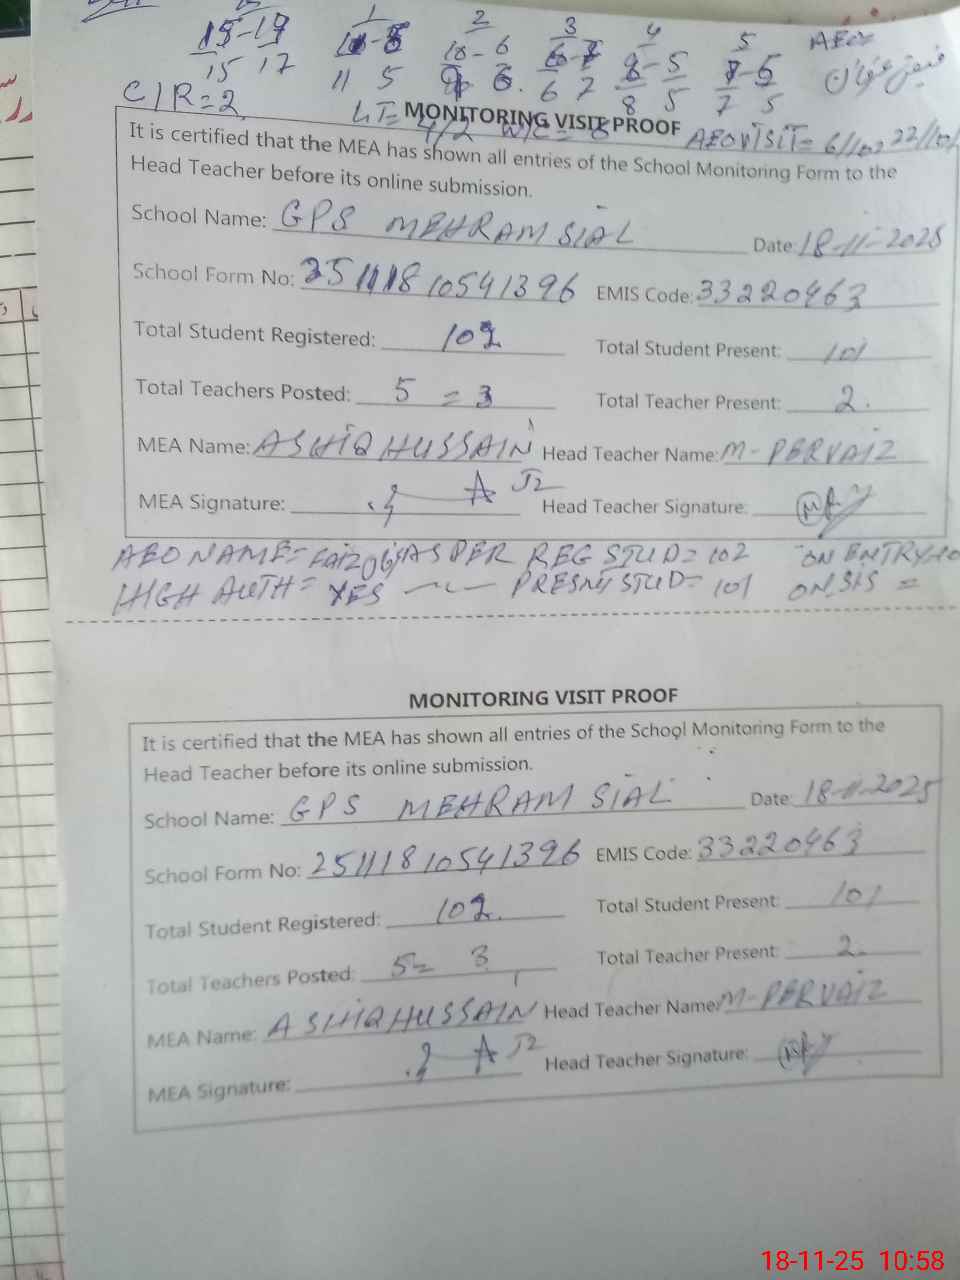 1 2 3 4 5 AEO
15-19 10-6 6-7 8-5 7-5 فیض عنوان
15 17 11 5 6. 6 7 8 5 7 5
C/R=2 LT= 4/2 W/C= 8 AEO VISIT= 6/10, 22/10/
MONITORING VISIT PROOF
It is certified that the MEA has shown all entries of the School Monitoring Form to the
Head Teacher before its online submission.
School Name: GPS MEHRAM SIAL Date: 18-11-2025
School Form No: 25111810541396 EMIS Code: 33220463
Total Student Registered: 102 Total Student Present: 101
Total Teachers Posted: 5 = 3 Total Teacher Present: 2.
MEA Name: ASHIQ HUSSAIN Head Teacher Name: M- PERVAIZ
MEA Signature: Head Teacher Signature:
AEO NAME= AS PER REG STUD= 102 ON ENTRY=10
HIGH AUTH= YES PRESNT STUD= 101 ON SIS =
MONITORING VISIT PROOF
It is certified that the MEA has shown all entries of the School Monitoring Form to the
Head Teacher before its online submission.
School Name: GPS MEHRAM SIAL Date: 18-11-2025
School Form No: 25111810541396 EMIS Code: 33220463
Total Student Registered: 102. Total Student Present: 101
Total Teachers Posted: 5= 3 Total Teacher Present: 2.
MEA Name: ASHIQ HUSSAIN Head Teacher Name: M- PERVAIZ
MEA Signature: Head Teacher Signature:
18-11-25 10:58